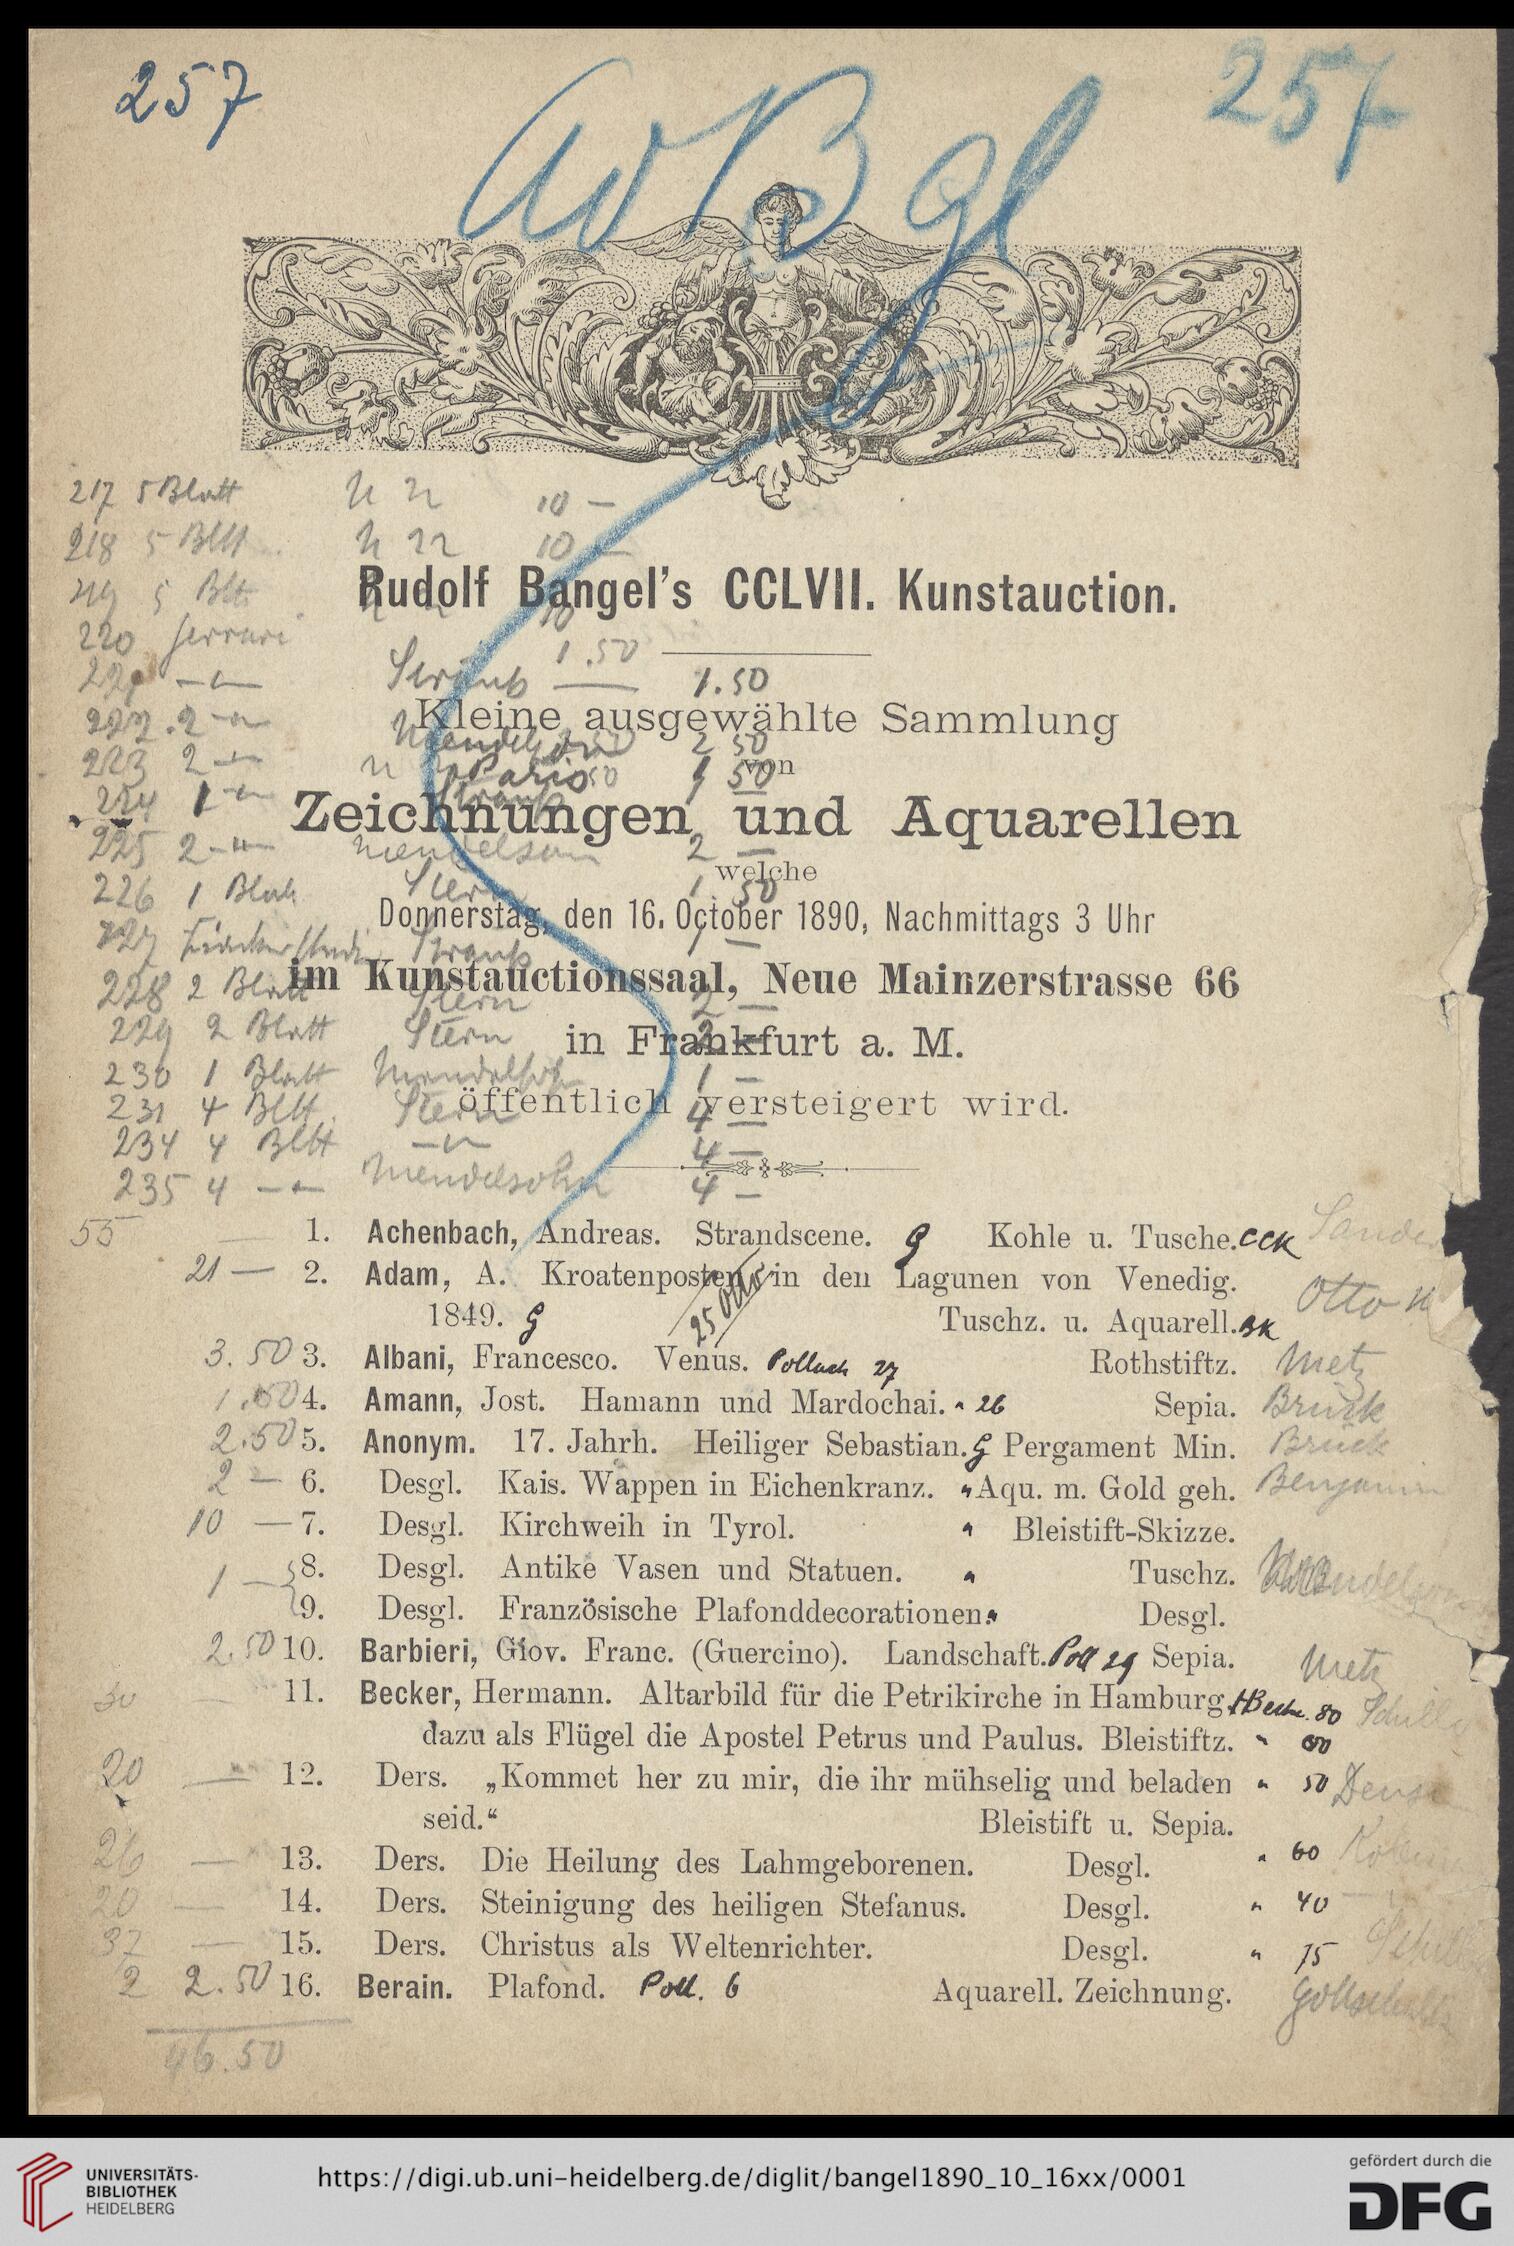 257
257
217 5 Blatt 10 —
218 5 Bltt 10 —
219 5 Blt 10
Rudolf Bangel's CCLVII. Kunstauction.
220 Ferrari 1.50
Strauß 1.50
Kleine ausgewählte Sammlung
222 2 Mendelsohn 2 50
von
223 2 Paris 50
224 1 Strauß
Zeichnungen und Aquarellen
225 2 Mendelsohn 2 —
welche
226 1 Blatt Stern 1.50
Donnerstag, den 16. October 1890, Nachmittags 3 Uhr
227 Strauß
im Kunstauctionssaal, Neue Mainzerstrasse 66
228 2 Blatt Stern 2 —
229 2 Blatt Stern 2 —
in Frankfurt a. M.
230 1 Blatt Mendelsohn 1 —
231 4 Bltt Stern 4 —
öffentlich versteigert wird.
234 4 Bltt 4 —
235 4 Mendelsohn 4 —
55 — 1. Achenbach, Andreas. Strandscene. Kohle u. Tusche. CCK Sander
21 — 2. Adam, A. Kroatenposten in den Lagunen von Venedig.
25 Otto
1849. Tuschz. u. Aquarell. Otto
3.50 3. Albani, Francesco. Venus. Pollack 27 Rothstiftz. Metz
1.50 4. Amann, Jost. Hamann und Mardochai. 26 Sepia. Brück
2.50 5. Anonym. 17. Jahrh. Heiliger Sebastian. Pergament Min. Brück
2 — 6. Desgl. Kais. Wappen in Eichenkranz. Aqu. m. Gold geh. Benjamin
10 — 7. Desgl. Kirchweih in Tyrol. Bleistift-Skizze.
1 — 8. Desgl. Antike Vasen und Statuen. Tuschz. Mendelsohn
9. Desgl. Französische Plafonddecorationen. Desgl.
2.50 10. Barbieri, Giov. Franc. (Guercino). Landschaft. Poll 29 Sepia. Metz
30 — 11. Becker, Hermann. Altarbild für die Petrikirche in Hamburg 80
dazu als Flügel die Apostel Petrus und Paulus. Bleistiftz.
20 — 12. Ders. „Kommet her zu mir, die ihr mühselig und beladen " 50
seid.“ Bleistift u. Sepia.
26 — 13. Ders. Die Heilung des Lahmgeborenen. Desgl. " 60
20 — 14. Ders. Steinigung des heiligen Stefanus. Desgl. " 40
37 — 15. Ders. Christus als Weltenrichter. Desgl. " 75
2 2.50 16. Berain. Plafond. Poll. 6 Aquarell. Zeichnung. Gottschalk
46.50
UNIVERSITÄTS-
BIBLIOTHEK
HEIDELBERG
https://digi.ub.uni-heidelberg.de/diglit/bangel1890_10_16xx/0001
gefördert durch die
DFG